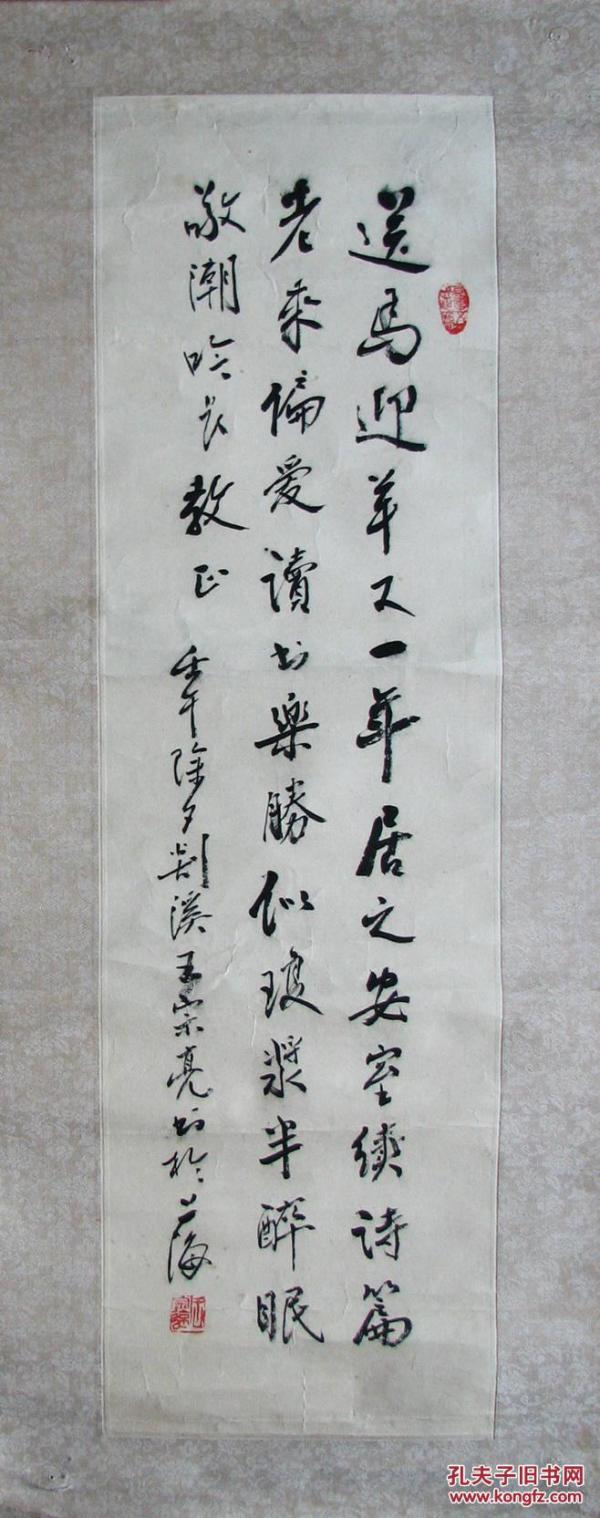 送馬迎羊又一年居之安室續诗篇
老来偏爱讀书樂勝似瓊漿半醉眠
敬潮吟长教正
壬午除夕剡溪王宗亮书於上海
孔夫子旧书网
www.kongfz.com